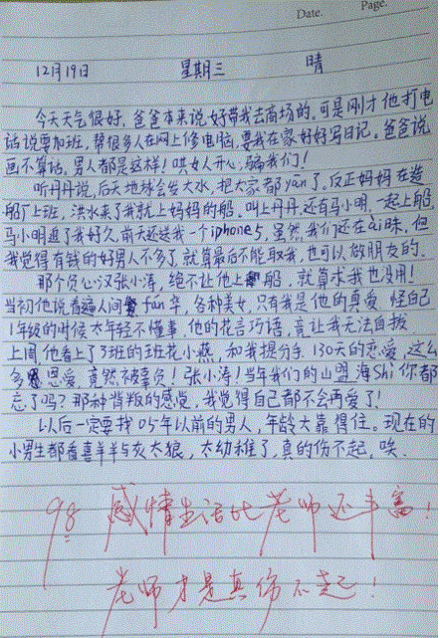 Date. Page.
12月19日 星期三 晴
今天天气很好，爸爸本来说好带我去商场的。可是刚才他打电
话说要加班，帮很多人在网上修电脑，要我在家好好写日记。爸爸说
画不算话，男人都是这样！哄女人开心，骗我们！
听丹丹说，后天地球会发大水，把大家都yān了，反正妈妈在造
船厂上班，洪水来了我就上妈妈的船。叫上丹丹，还有马小明，一起上船，
马小明追了我好久，前天还送我一个iphone5，虽然我们还在ài昧，但
我觉得有钱的好男人不多了，就算最后不能取我，也可以做朋友的。
那个负心汉张小涛，绝不让他上船，就算求我也没用！
当初他说看遍人间fán华，各种美女，只有我是他的真爱，怪自己
1年级的时候太年轻不懂事，他的花言巧语，竟让我无法自拔
上周他看上了3班的班花小燕，和我提分手，130天的恋爱，这么
多恩爱，竟然被辜负！张小涛！当年我们的山盟海Shi你都
忘了吗？那种背叛的感觉，我觉得自己都不会再爱了！
以后一定要找05年以前的男人，年龄大靠得住。现在的
小男生都看喜羊羊与灰太狼，太幼稚了，真的伤不起，唉．
98 感情生活比老师还丰富！
老师才是真伤不起！